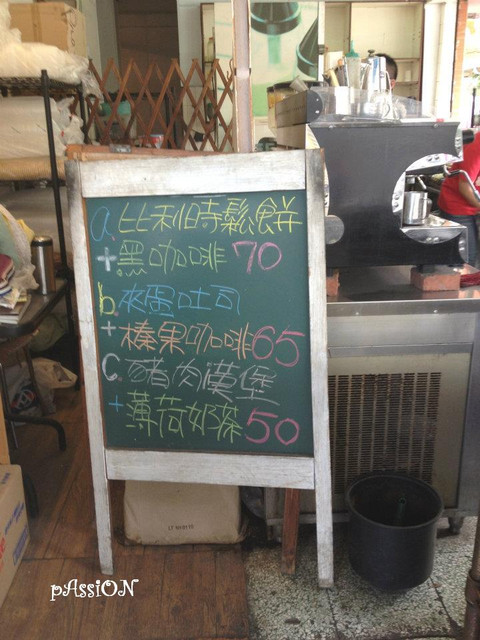 a. 比利時鬆餅
+黑咖啡 70
b. 夾蛋吐司
+榛果咖啡 65
C. 豬肉漢堡
+薄荷奶茶 50
pAssiON